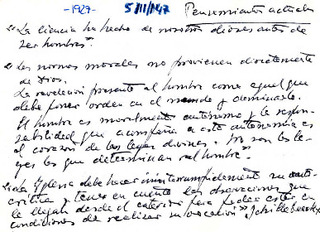 -1927- 5/III/147 Pensamientos actuales
"La ciencia ha hecho de nosotros dioses antes de
ser hombres".
Las normas morales no provienen directamente
de Dios.
La revelación presenta al hombre como aquel que
debe poner orden en el mundo y dominarlo.
El hombre es moralmente autónomo y la respon-
sabilidad que acompaña a esta autonomía es
el corazón de las leyes divinas. no son las le-
yes las que determinan al hombre"
La Iglesia debe hacer ininterrumpidamente su auto-
crítica y tener en cuenta las observaciones que
le llegan desde el exterior para poder estar en
condiciones de realizar su vocación"